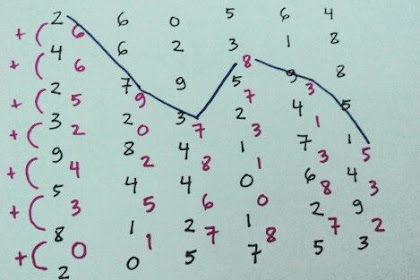 2 6 0 5 6 4
+( 6
4 6 2 3 1 8
+( 6 8
2 7 9 5 9 8
+( 5 9 7 3
3 2 3 2 4 5
+( 2 0 7 3 1
9 8 4 1 7 1
+( 4 2 8 1 3 5
5 4 4 0 6 4
+( 3 5 6 0 8 3
8 1 2 1 2 9
+( 0 1 7 8 7 2
2 0 5 7 5 3